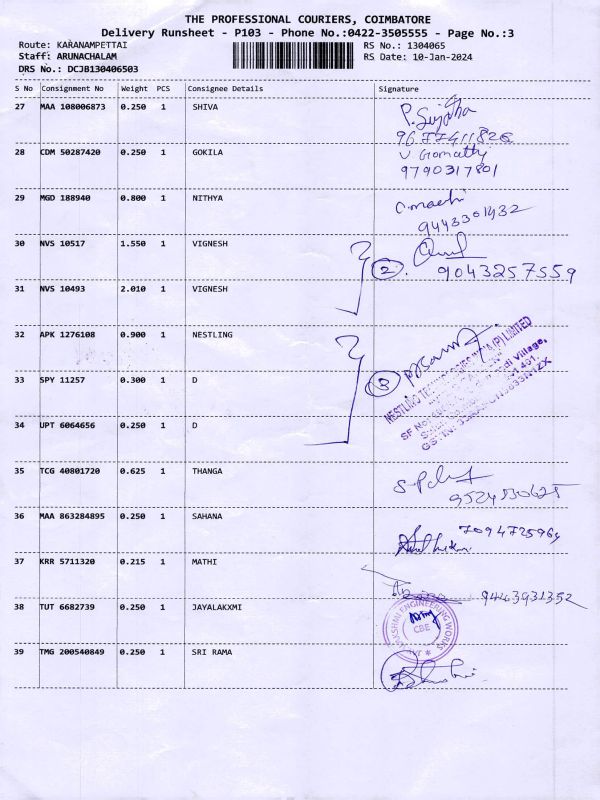 THE PROFESSIONAL COURIERS, COIMBATORE
Delivery Runsheet - P103 - Phone No.:0422-3505555 - Page No.:3
Route: KARANAMPETTAI RS No.: 1304065
Staff: ARUNACHALAM RS Date: 10-Jan-2024
DRS No.: DCJB130406503
S No Consignment No Weight PCS Consignee Details Signature
27 MAA 108006873 0.250 1 SHIVA
P. Sujatha
9677411826
28 CDM 50287420 0.250 1 GOKILA
V Gomathy
9790317801
29 MGD 188940 0.800 1 NITHYA
9443301932
30 NVS 10517 1.550 1 VIGNESH
2 9043257559
31 NVS 10493 2.010 1 VIGNESH
32 APK 1276108 0.900 1 NESTLING
33 SPY 11257 0.300 1 D
3
NESTLING TECHNOLOGIES INDIA (P) LIMITED
34 UPT 6064656 0.250 1 D
35 TCG 40801720 0.625 1 THANGA
9524130625
36 MAA 863284895 0.250 1 SAHANA
7094725964
37 KRR 5711320 0.215 1 MATHI
9443931352
38 TUT 6682739 0.250 1 JAYALAKXMI
LAKSHMI ENGINEERING WORKS
CBE
39 TMG 200540849 0.250 1 SRI RAMA